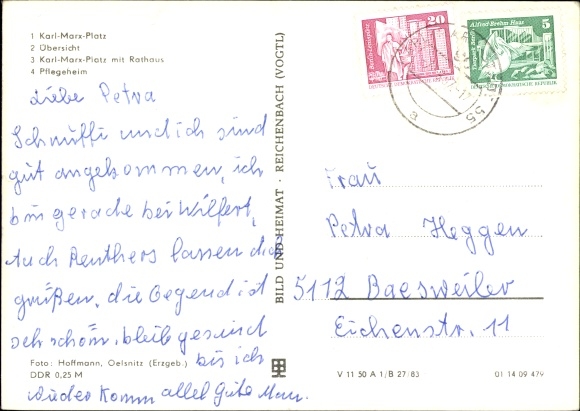 1 Karl-Marx-Platz
2 Übersicht
3 Karl-Marx-Platz mit Rathaus
4 Pflegeheim
Liebe Petra
Schnuffi und ich sind
gut angekommen, ich
bin gerade bei Wilfert,
Auch Renthers lassen dich
grüßen, die Gegend ist
sehr schön, bleib gesund
bis ich
wieder komm alles Gute
Foto: Hoffmann, Oelsnitz (Erzgeb.)
DDR 0,25 M
BILD UND HEIMAT · REICHENBACH (VOGTL)
20
Berlin-Leninplatz
5
Tierpark Berlin Alfred-Brehm-Haus
DEUTSCHE DEMOKRATISCHE REPUBLIK
55
Frau
Petra Heggen
5112 Baesweiler
Eichenstr. 11
V 11 50 A 1/B 27/83
01 14 09 479